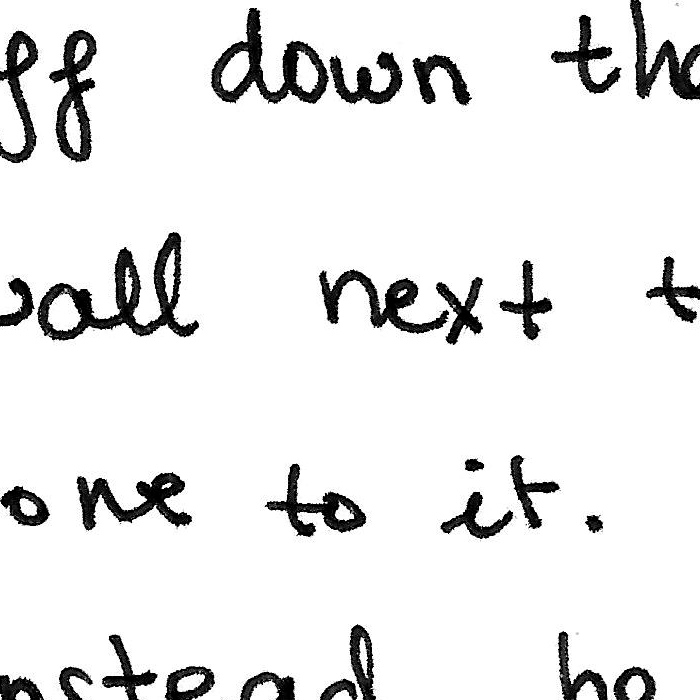 ff down the
wall next t
ome to it.
nstead he